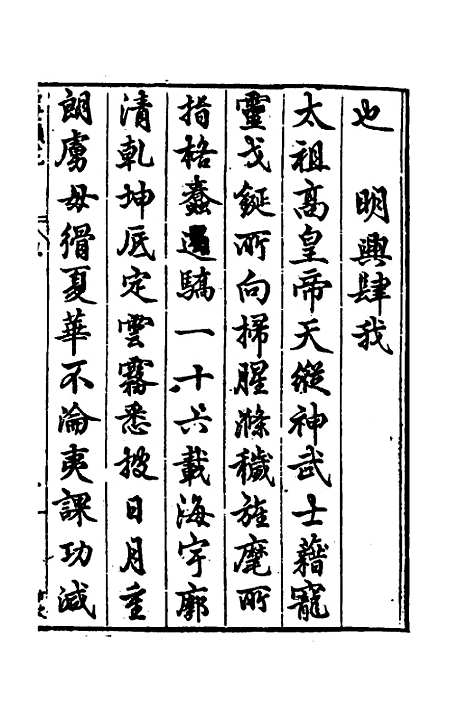 也　明興肆我
太祖高皇帝天縱神武士藉寵
靈戈鋋所向掃腥滌穢旌麾所
指格蠢遏驕一十六載海宇廓
清乾坤底定雲霧悉披日月重
朗虜毋猾夏華不淪夷課功減